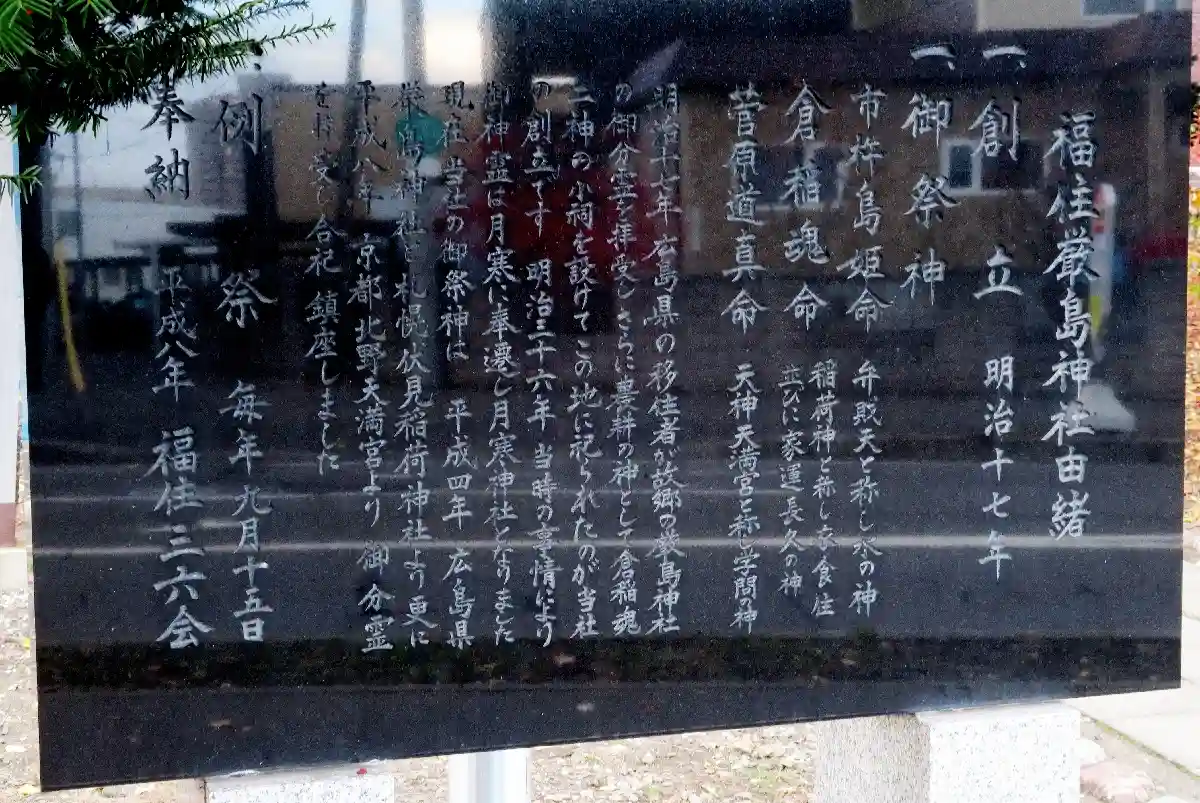 福住厳島神社由緒
一、創立 明治十七年
一、御祭神
市杵島姫命 弁財天と称し水の神
倉稲魂命 稲荷神と称し衣食住
並びに家運長久の神
菅原道真命 天神天満宮と称し学問の神
明治十七年 広島県の移住者が故郷の厳島神社
の御分霊を拝受しさらに農耕の神として倉稲魂
二神の小祠を設けてこの地に祀られたのが当社
の創立です 明治三十六年 当時の事情により
御神霊は月寒に奉遷し月寒神社となりました
現在当社の御祭神は 平成四年 広島県
厳島神社官札幌伏見稲荷神社より更に
平成八年 京都北野天満宮より御分霊
を拝受し合祀鎮座しました
例祭 毎年九月十五日
奉納 平成八年 福住三六会